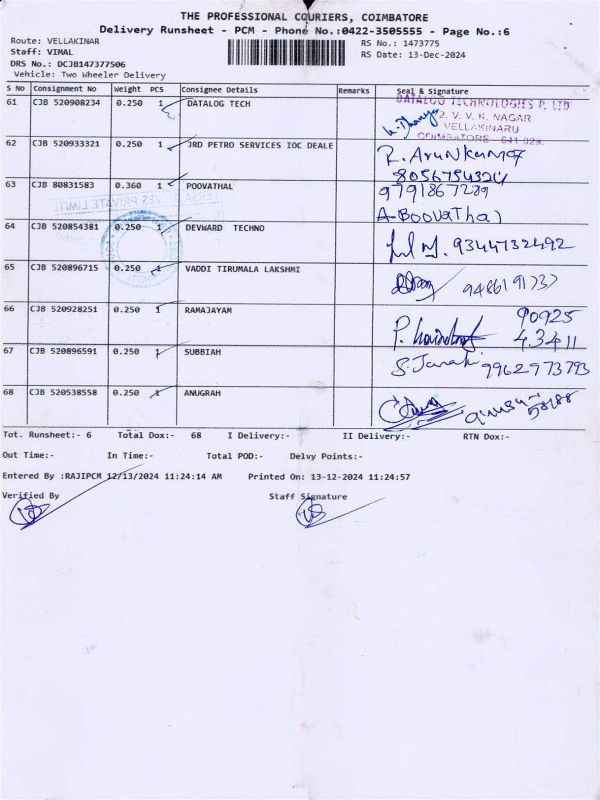 THE PROFESSIONAL COURIERS, COIMBATORE
Delivery Runsheet - PCM - Phone No.:0422-3505555 - Page No.:6
Route: VELLAKINAR
RS No.: 1473775
Staff: VIMAL
RS Date: 13-Dec-2024
DRS No.: DCJB147377506
Vehicle: Two Wheeler Delivery
S No Consignment No Weight PCS Consignee Details Remarks Seal & Signature
61 CJB 520908234 0.250 1 DATALOG TECH
DATALOG TECHNOLOGIES P. LTD
2, V. V. K. NAGAR
VELLAKINARU
COIMBATORE - 641 029.
62 CJB 520933321 0.250 1 JRD PETRO SERVICES IOC DEALE
R. Arunkumar
8056754324
63 CJB 80831583 0.360 1 POOVATHAL
9791867289
A. Boovathal
64 CJB 520854381 0.250 1 DEVWARD TECHNO
9344732492
65 CJB 520896715 0.250 1 VADDI TIRUMALA LAKSHMI
9486191737
66 CJB 520928251 0.250 1 RAMAJAYAM
90925
43411
67 CJB 520896591 0.250 1 SUBBIAH
S. Janaki 9962973793
68 CJB 520538558 0.250 1 ANUGRAH
Tot. Runsheet:- 6 Total Dox:- 68 I Delivery:- II Delivery:- RTN Dox:-
Out Time:- In Time:- Total POD:- Delvy Points:-
Entered By :RAJIPCM 12/13/2024 11:24:14 AM Printed On: 13-12-2024 11:24:57
Verified By Staff Signature